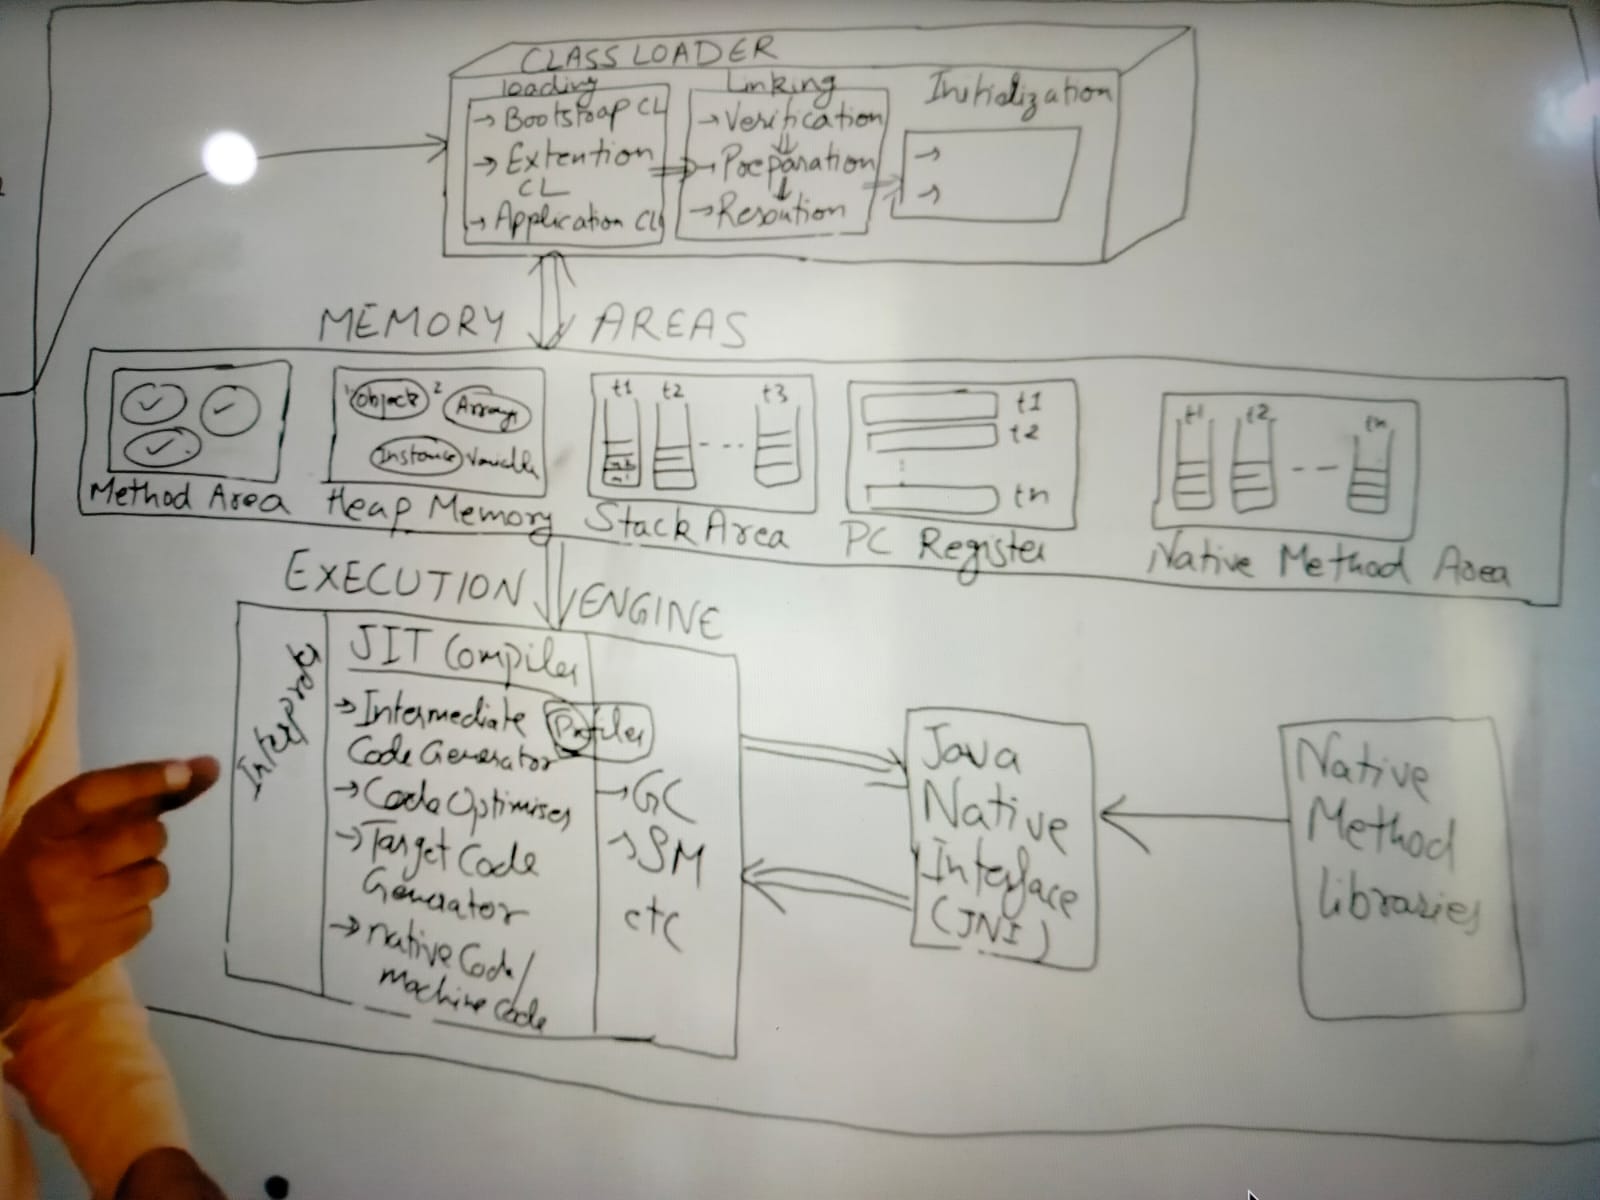 CLASS LOADER
Loading
→ Bootstrap CL
→ Extention
CL
→ Application CL
Linking
→ Verification
→ Preparation
→ Resoution
Initialization
→
→
MEMORY AREAS
Method Area
1 Object 2 Arrays
Instance Variable
Heap Memory
t1 t2 - - - t3
Stack Area
t1
t2
tn
PC Register
t1 t2 -- tn
Native Method Area
EXECUTION ENGINE
JIT Compiler
→ Intermediate
Code Generator
→ Code Optimiser
→ Target Code
Generator
→ native Code/
machine Code
Profiler
→ GC
→ SM
etc
Java
Native
Interface
(JNI)
Native
Method
Libraries